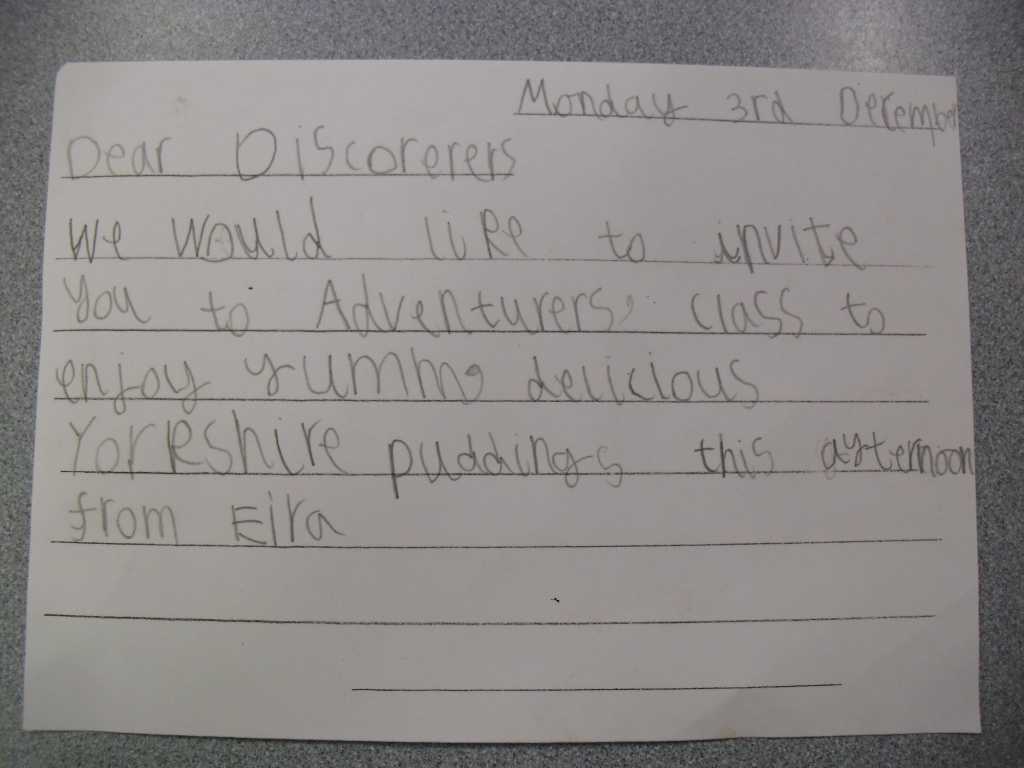 Monday 3rd December
Dear Discorerers
We would like to invite
you to Adventurers, class to
enjoy yummy delicious
Yorkshire puddings this afternoon
from Eira